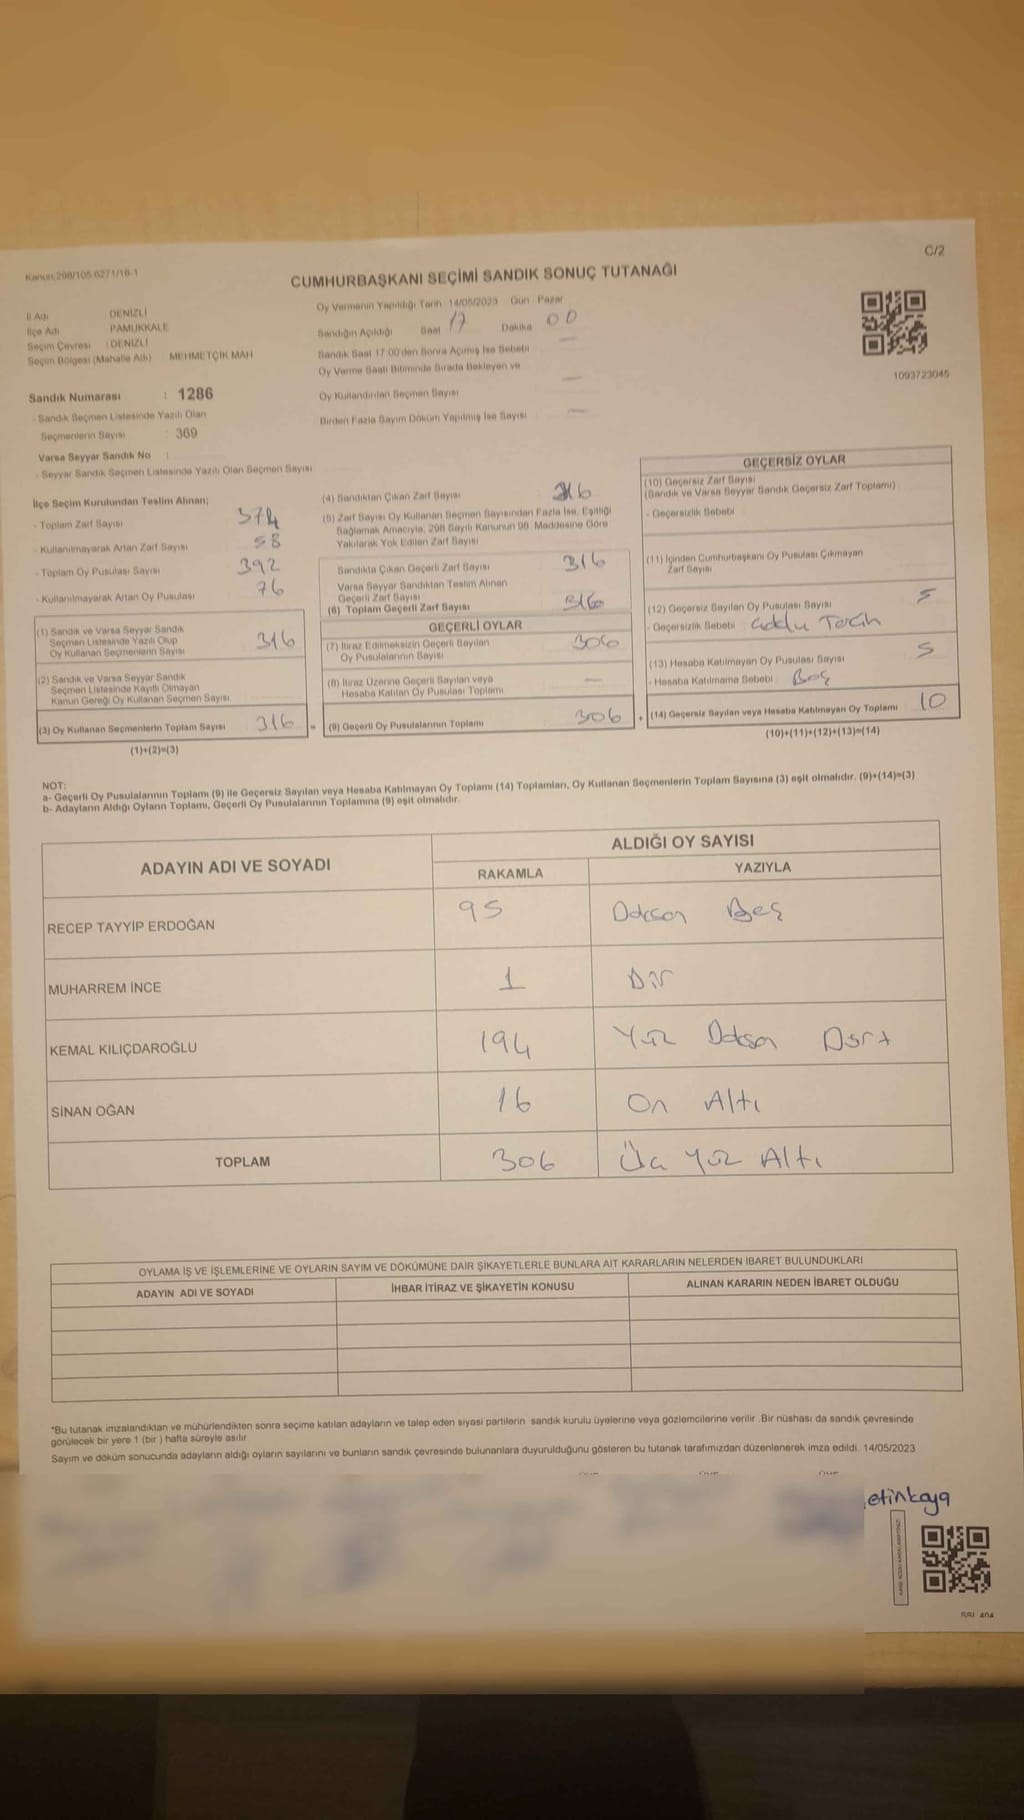 C/2
Kanun 298/105 6271/18-1
CUMHURBAŞKANI SEÇİMİ SANDIK SONUÇ TUTANAĞI
İl Adı : DENİZLİ
İlçe Adı : PAMUKKALE
Seçim Çevresi : DENİZLİ
Seçim Bölgesi (Mahalle Adı) : MEHMETÇİK MAH
Oy Vermenin Yapıldığı Tarih 14/05/2023 Gün Pazar
Sandığın Açıldığı Saat 17 Dakika 00
Sandık Saat 17:00'den Sonra Açılmış İse Sebebi —
Oy Verme Saati Bitiminde Sırada Bekleyen ve
Oy Kullandırılan Seçmen Sayısı —
Birden Fazla Sayım Döküm Yapılmış İse Sayısı —
1093723045
Sandık Numarası : 1286
- Sandık Seçmen Listesinde Yazılı Olan
Seçmenlerin Sayısı : 369
Varsa Seyyar Sandık No :
- Seyyar Sandık Seçmen Listesinde Yazılı Olan Seçmen Sayısı
İlçe Seçim Kurulundan Teslim Alınan;
- Toplam Zarf Sayısı 374
- Kullanılmayarak Artan Zarf Sayısı 58
- Toplam Oy Pusulası Sayısı 392
- Kullanılmayarak Artan Oy Pusulası 76
(1) Sandık ve Varsa Seyyar Sandık
Seçmen Listesinde Yazılı Olup
Oy Kullanan Seçmenlerin Sayısı 316
(2) Sandık ve Varsa Seyyar Sandık
Seçmen Listesinde Kayıtlı Olmayan
Kanun Gereği Oy Kullanan Seçmen Sayısı
(3) Oy Kullanan Seçmenlerin Toplam Sayısı 316
(1)+(2)=(3)
(4) Sandıktan Çıkan Zarf Sayısı : 316
(5) Zarf Sayısı Oy Kullanan Seçmen Sayısından Fazla İse, Eşitliği
Sağlamak Amacıyla, 298 Sayılı Kanunun 98. Maddesine Göre
Yakılarak Yok Edilen Zarf Sayısı
Sandıkta Çıkan Geçerli Zarf Sayısı 316
Varsa Seyyar Sandıktan Teslim Alınan
Geçerli Zarf Sayısı
(6) Toplam Geçerli Zarf Sayısı 316
GEÇERLİ OYLAR
(7) İtiraz Edilmeksizin Geçerli Sayılan
Oy Pusulalarının Sayısı 306
(8) İtiraz Üzerine Geçerli Sayılan veya
Hesaba Katılan Oy Pusulası Toplamı —
= (9) Geçerli Oy Pusulalarının Toplamı 306
GEÇERSİZ OYLAR
(10) Geçersiz Zarf Sayısı
(Sandık ve Varsa Seyyar Sandık Geçersiz Zarf Toplamı)
- Geçersizlik Sebebi
(11) İçinden Cumhurbaşkanı Oy Pusulası Çıkmayan
Zarf Sayısı
(12) Geçersiz Sayılan Oy Pusulası Sayısı 5
- Geçersizlik Sebebi
(13) Hesaba Katılmayan Oy Pusulası Sayısı 5
- Hesaba Katılmama Sebebi Boş
+ (14) Geçersiz Sayılan veya Hesaba Katılmayan Oy Toplamı 10
(10)+(11)+(12)+(13)=(14)
NOT:
a- Geçerli Oy Pusulalarının Toplamı (9) ile Geçersiz Sayılan veya Hesaba Katılmayan Oy Toplamı (14) Toplamları, Oy Kullanan Seçmenlerin Toplam Sayısına (3) eşit olmalıdır. (9)+(14)=(3)
b- Adayların Aldığı Oyların Toplamı, Geçerli Oy Pusulalarının Toplamına (9) eşit olmalıdır.
ADAYIN ADI VE SOYADI ALDIĞI OY SAYISI
RAKAMLA YAZIYLA
RECEP TAYYİP ERDOĞAN 95 Doksan Beş
MUHARREM İNCE 1 Bir
KEMAL KILIÇDAROĞLU 194 Yüz Doksan Dört
SİNAN OĞAN 16 On Altı
TOPLAM 306 Üç Yüz Altı
OYLAMA İŞ VE İŞLEMLERİNE VE OYLARIN SAYIM VE DÖKÜMÜNE DAİR ŞİKAYETLERLE BUNLARA AİT KARARLARIN NELERDEN İBARET BULUNDUKLARI
ADAYIN ADI VE SOYADI İHBAR İTİRAZ VE ŞİKAYETİN KONUSU ALINAN KARARIN NEDEN İBARET OLDUĞU
*Bu tutanak imzalandıktan ve mühürlendikten sonra seçime katılan adayların ve talep eden siyasi partilerin sandık kurulu üyelerine veya gözlemcilerine verilir .Bir nüshası da sandık çevresinde
görülecek bir yere 1 (bir ) hafta süreyle asılır.
Sayım ve döküm sonucunda adayların aldığı oyların sayılarını ve bunların sandık çevresinde bulunanlara duyurulduğunu gösteren bu tutanak tarafımızdan düzenlenerek imza edildi. 14/05/2023
etinkaya